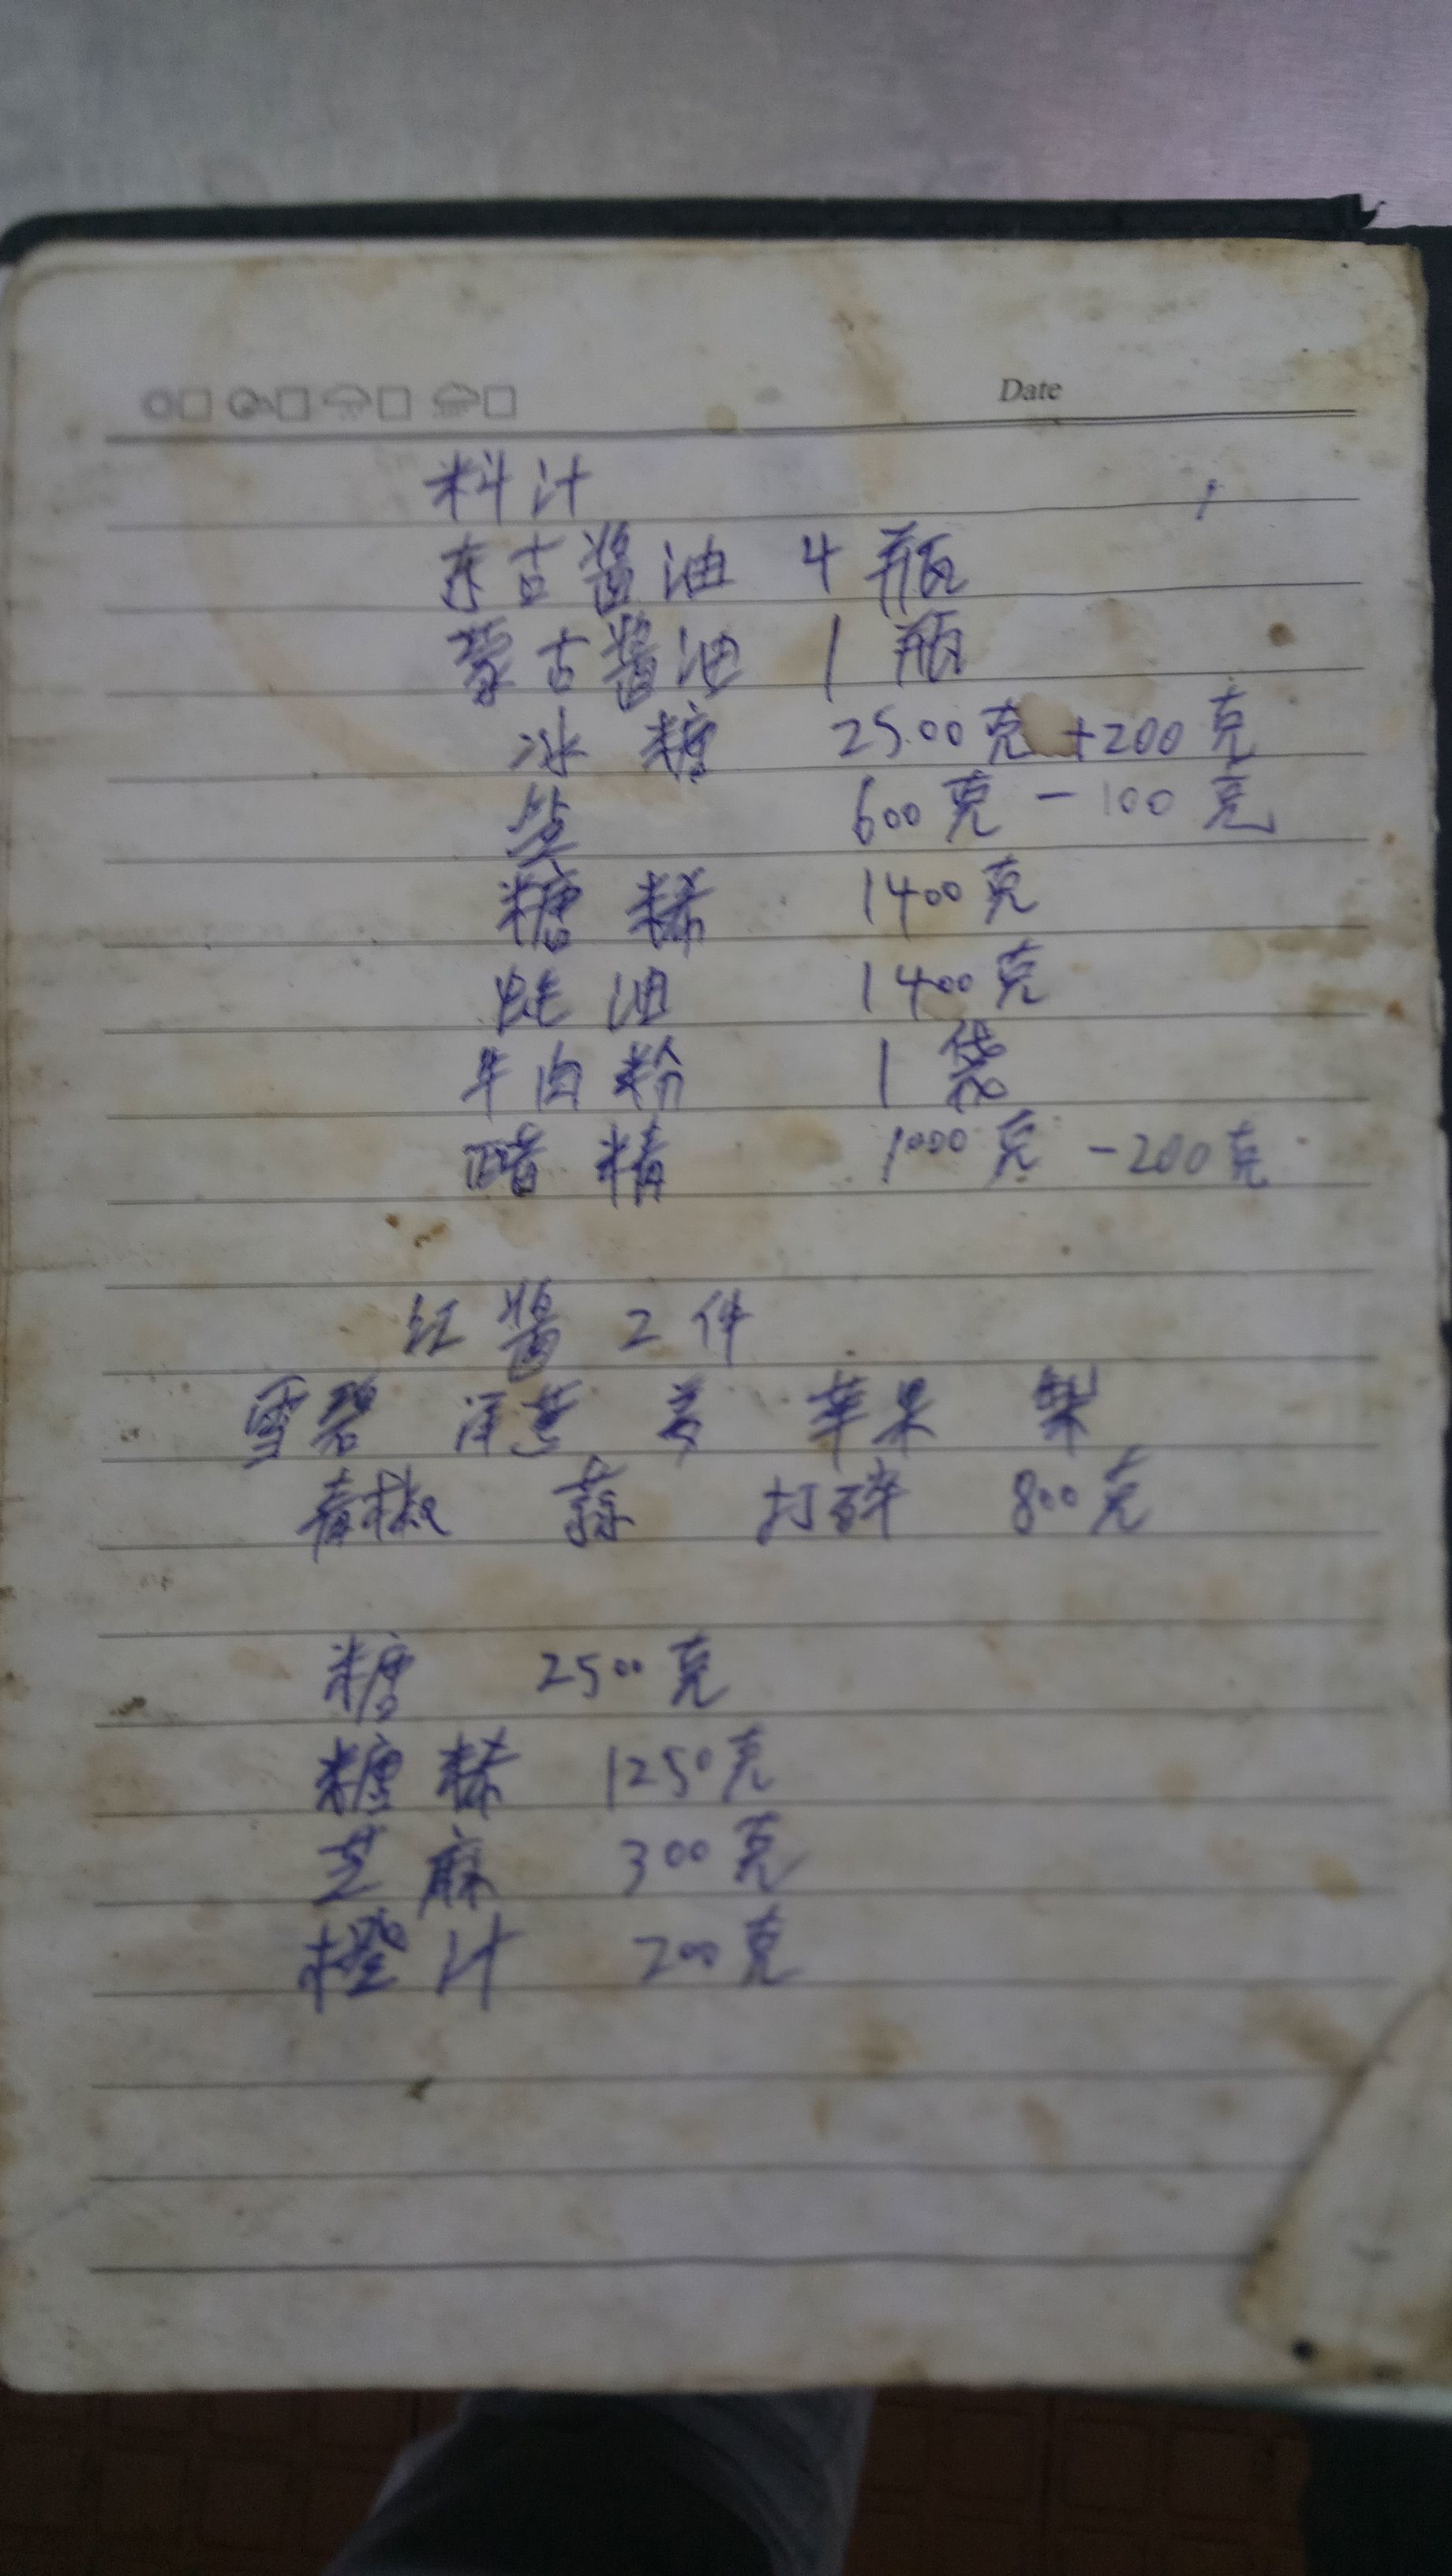 Date
料汁
东古醬油 4瓶
蒙古醬油 1瓶
冰糖 2500克 +200克
盐 600克 -100克
糖稀 1400克
蚝油 1400克
牛肉粉 1袋
醋精 1000克 -200克
红醬 2件
雪碧 洋葱 姜 苹果 梨
青椒 蒜 打碎 800克
糖 2500克
糖稀 1250克
芝麻 300克
橙汁 200克